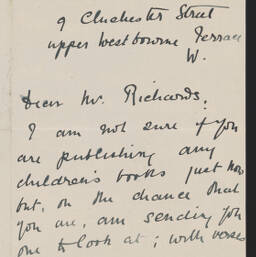 9 Chichester Street
upper Westbourne Terrace
W.
Dear Mr. Richards,
I am not sure if you
are publishing any
children's books just now
but, on the chance that
you are, am sending you
one to look at; with verses